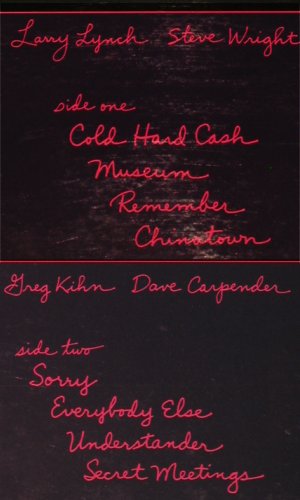 Larry Lynch Steve Wright
side one
Cold Hard Cash
Museum
Remember
Chinatown
Greg Kihn Dave Carpender
side two
Sorry
Everybody Else
Understander
Secret Meetings